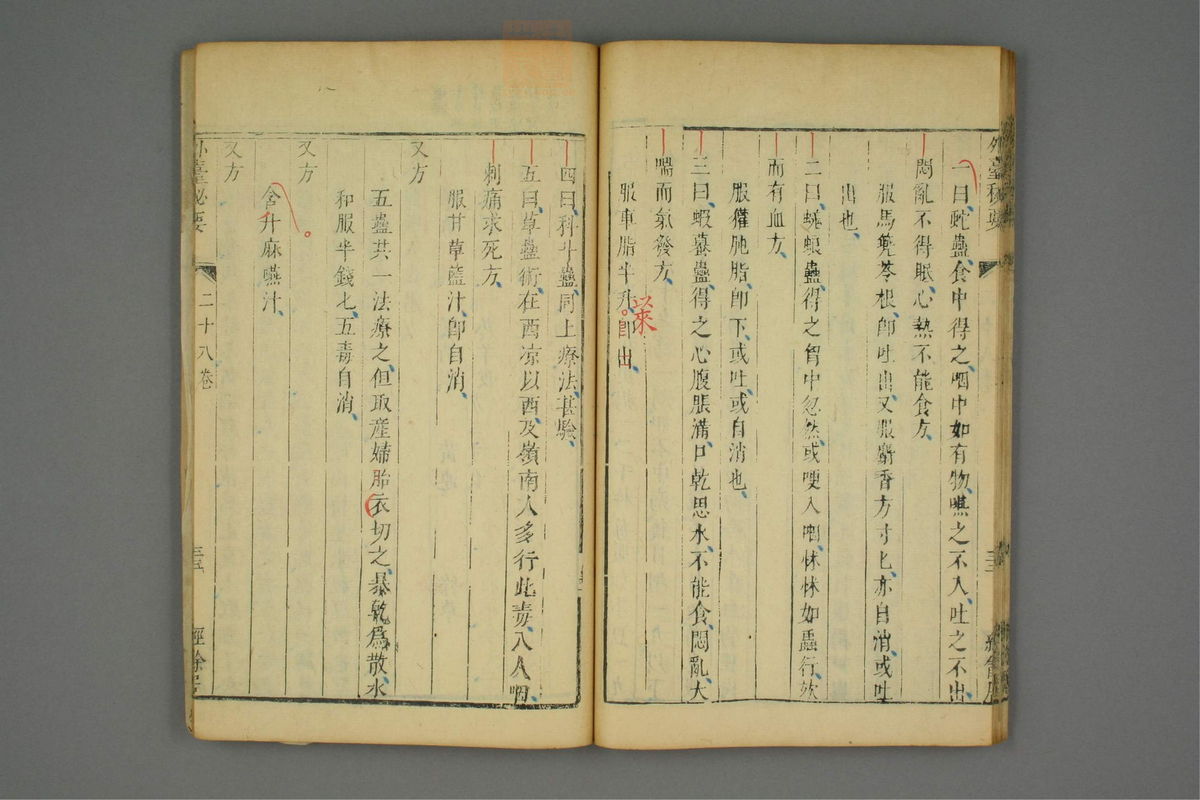 外臺秘要
一曰蛇蠱食中得之咽中如有物嚥之不入吐之不出
悶亂不得眠心熱不能食方
服馬兜苓根卽吐出又服麝香方寸匕亦自消或吐
出也
二曰蜣蜋蠱得之胷中忽然或哽入咽怵怵如蟲行欬
而有血方
服獾肫脂卽下或吐或自消也
三曰蝦蟇蠱得之心腹脹滿口乾思水不能食悶亂大
喘而氣發方
服車脂半升卽出
以來
四曰科斗蠱同上療法甚驗
五曰草蠱術在西凉以西及嶺南人多行此毒入人咽
刺痛求死方
服甘草藍汁卽自消
又方
五蠱共一法療之但取産婦胎衣切之暴乾爲散水
和服半錢匕五毒自消
又方
含升麻嚥汁
又方
外臺秘要
二十八卷
三五
經餘居